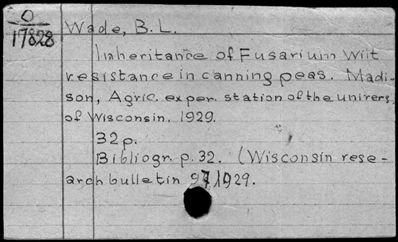 O
17828
Wade, B. L.
Inheritance of Fusarium wilt
resistance in canning peas. Madi-
son, Agric. exper. station of the univers.
of Wisconsin. 1929.
32 p.
Bibliogr. p. 32. (Wisconsin rese-
arch bulletin 97,1929.